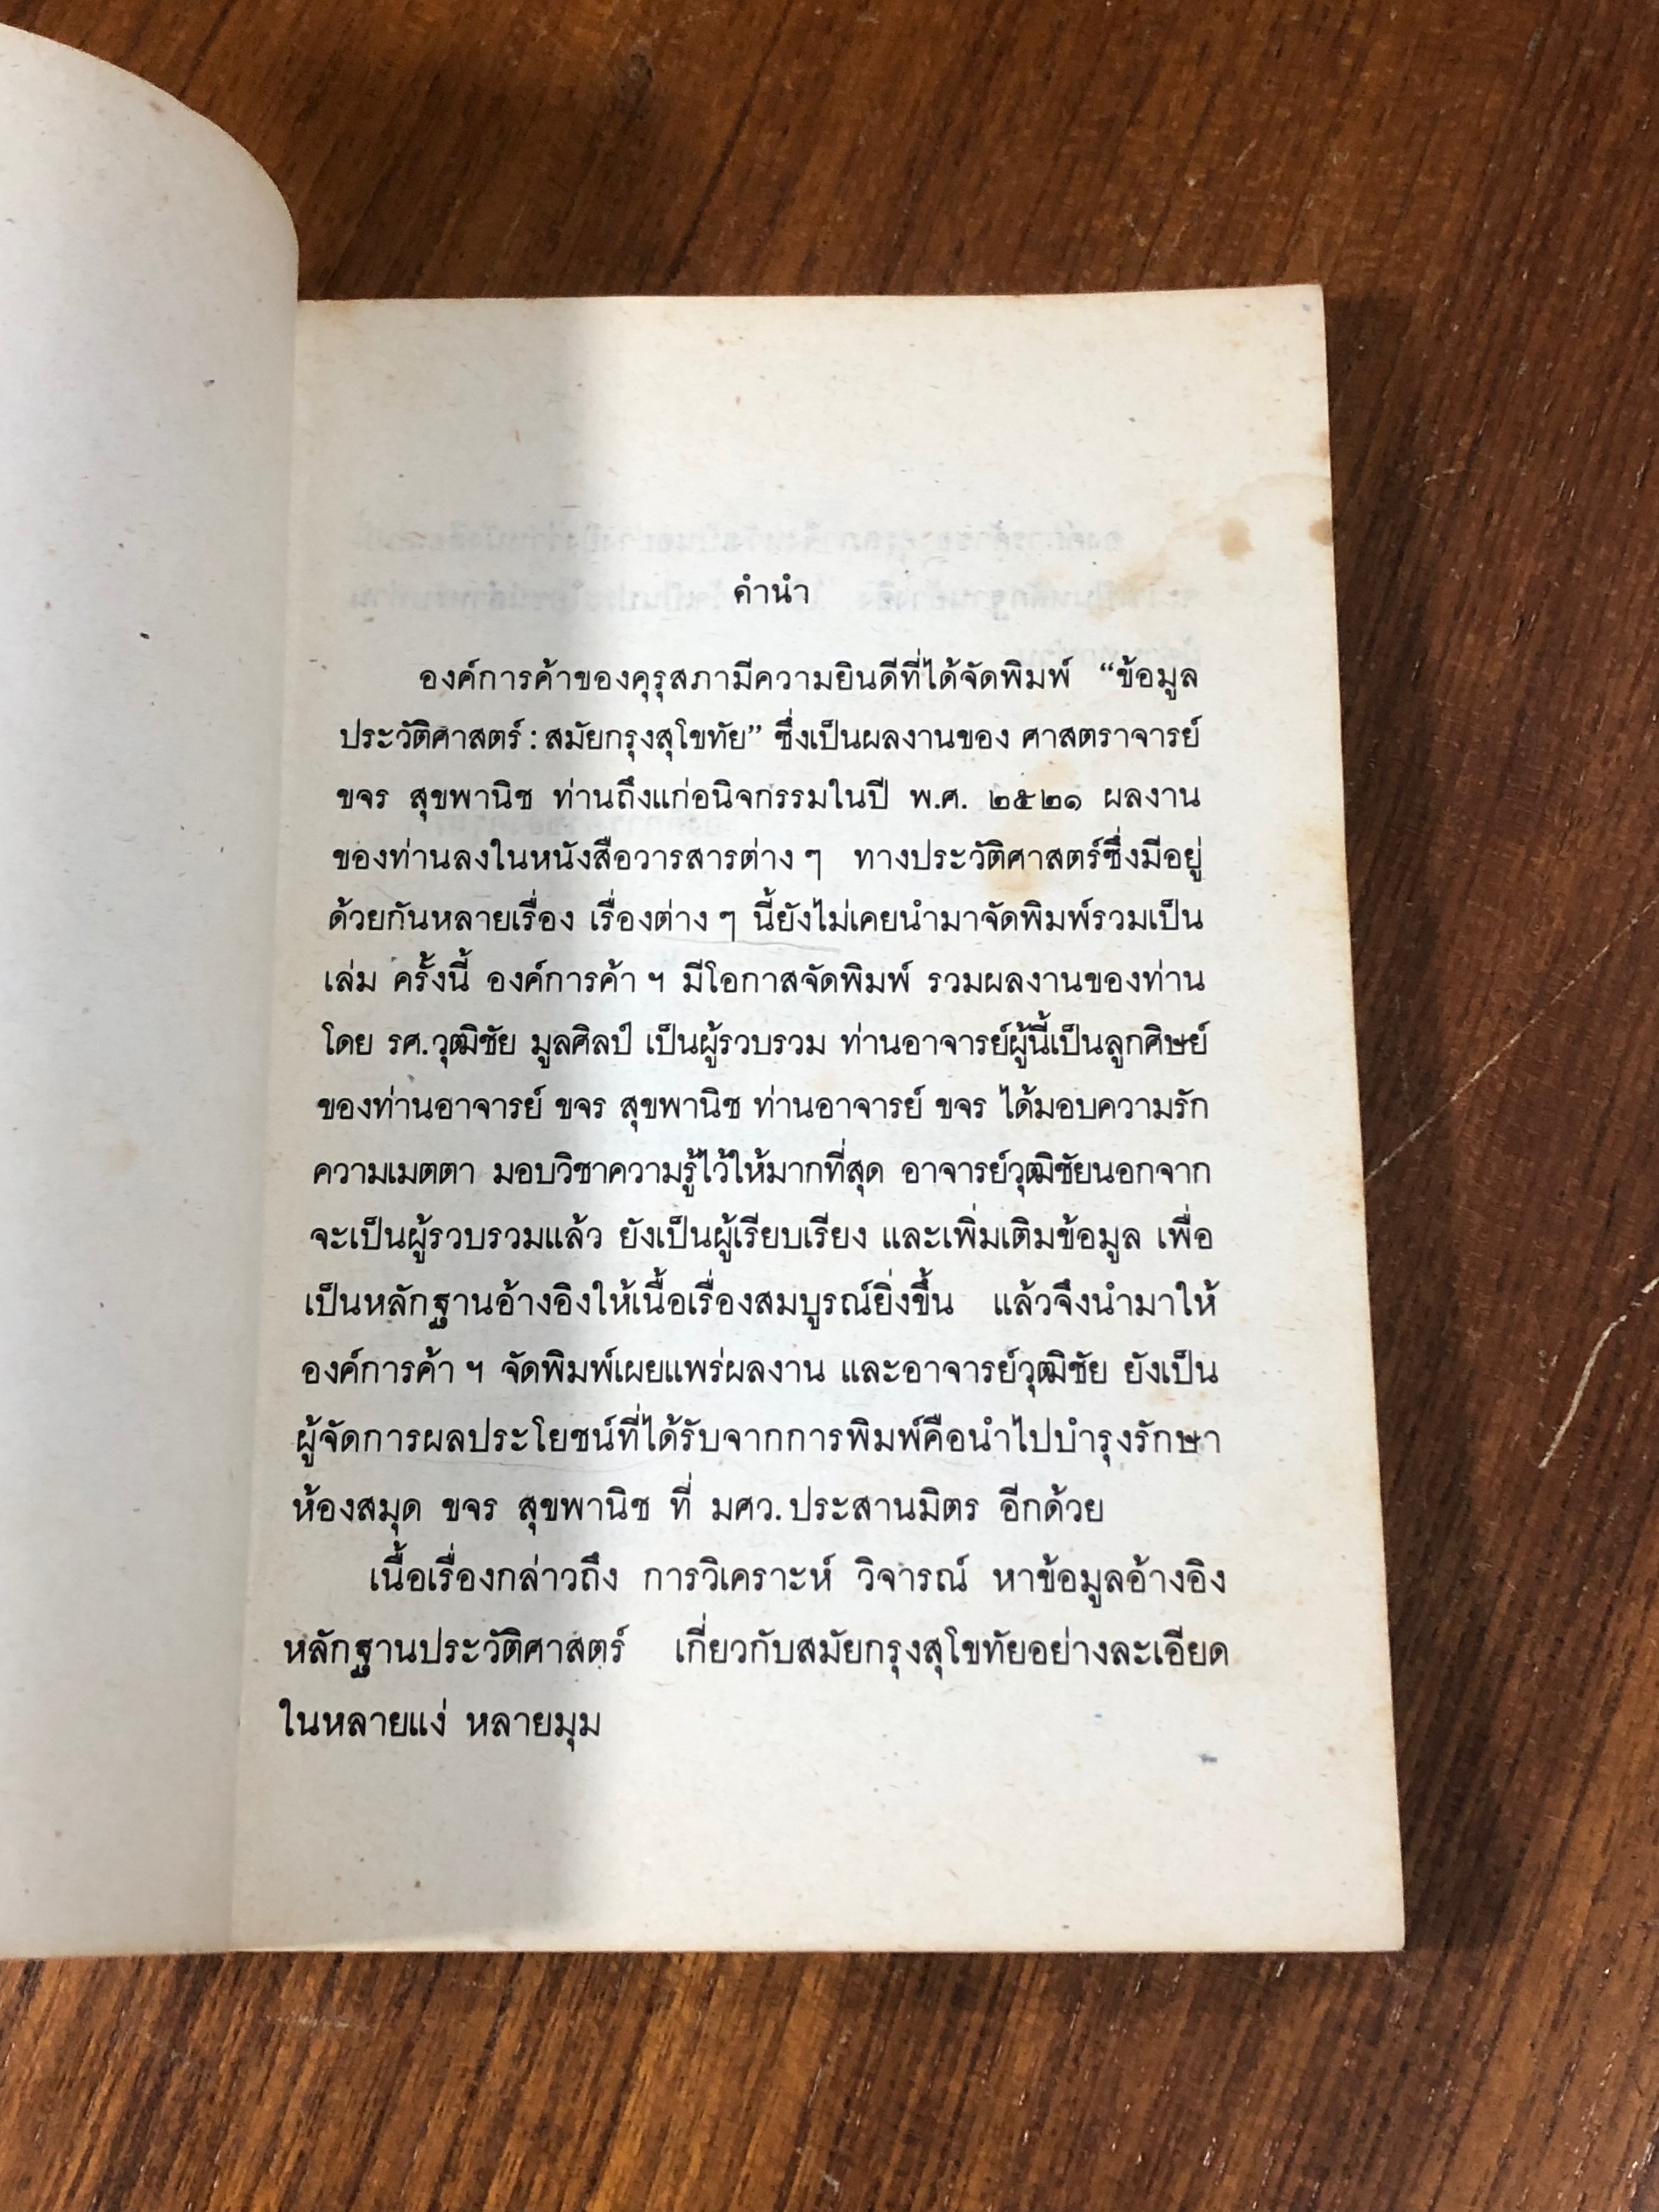 คำนำ
องค์การค้าของคุรุสภามีความยินดีที่ได้จัดพิมพ์ “ข้อมูล
ประวัติศาสตร์ : สมัยกรุงสุโขทัย” ซึ่งเป็นผลงานของ ศาสตราจารย์
ขจร สุขพานิช ท่านถึงแก่อนิจกรรมในปี พ.ศ. ๒๕๒๑ ผลงาน
ของท่านลงในหนังสือวารสารต่าง ๆ ทางประวัติศาสตร์ซึ่งมีอยู่
ด้วยกันหลายเรื่อง เรื่องต่าง ๆ นี้ยังไม่เคยนำมาจัดพิมพ์รวมเป็น
เล่ม ครั้งนี้ องค์การค้า ฯ มีโอกาสจัดพิมพ์ รวมผลงานของท่าน
โดย รศ.วุฒิชัย มูลศิลป์ เป็นผู้รวบรวม ท่านอาจารย์ผู้นี้เป็นลูกศิษย์
ของท่านอาจารย์ ขจร สุขพานิช ท่านอาจารย์ ขจร ได้มอบความรัก
ความเมตตา มอบวิชาความรู้ไว้ให้มากที่สุด อาจารย์วุฒิชัยนอกจาก
จะเป็นผู้รวบรวมแล้ว ยังเป็นผู้เรียบเรียง และเพิ่มเติมข้อมูล เพื่อ
เป็นหลักฐานอ้างอิงให้เนื้อเรื่องสมบูรณ์ยิ่งขึ้น แล้วจึงนำมาให้
องค์การค้า ฯ จัดพิมพ์เผยแพร่ผลงาน และอาจารย์วุฒิชัย ยังเป็น
ผู้จัดการผลประโยชน์ที่ได้รับจากการพิมพ์คือนำไปบำรุงรักษา
ห้องสมุด ขจร สุขพานิช ที่ มศว.ประสานมิตร อีกด้วย
เนื้อเรื่องกล่าวถึง การวิเคราะห์ วิจารณ์ หาข้อมูลอ้างอิง
หลักฐานประวัติศาสตร์ เกี่ยวกับสมัยกรุงสุโขทัยอย่างละเอียด
ในหลายแง่ หลายมุม